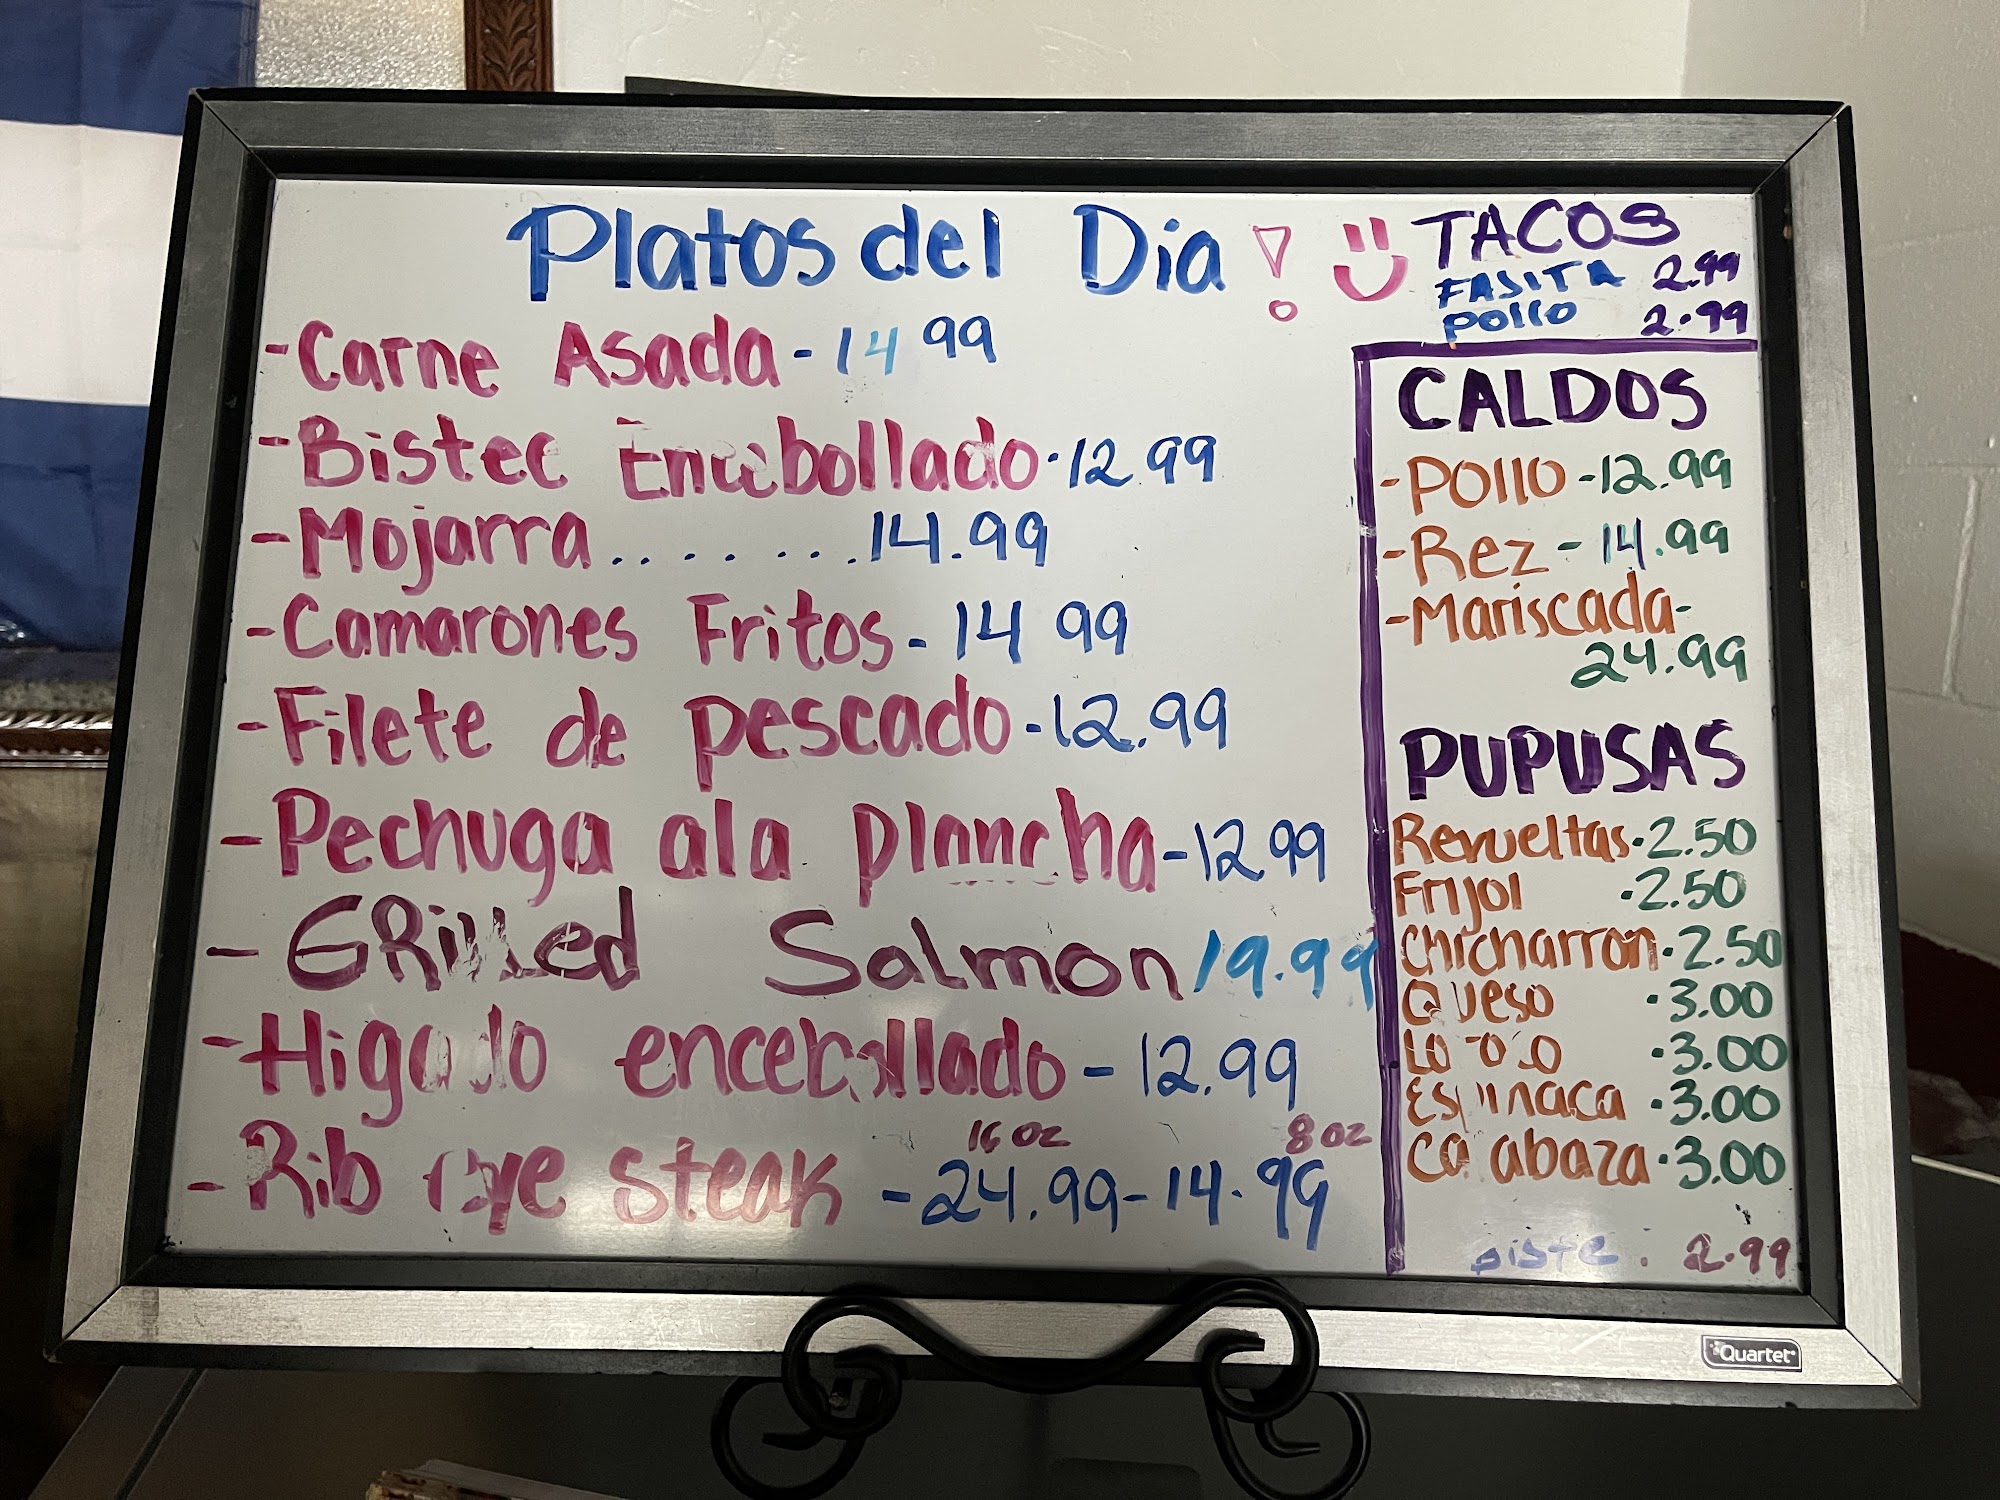 Platos del Dia!
-Carne Asada - 14 99
-Bistec Encebollado · 12 99
-Mojarra ........ 14.99
-Camarones Fritos - 14 99
-Filete de pescado - 12.99
-Pechuga ala plancha - 12 99
- GRilled Salmon 19.99
-Higado encebollado - 12.99
16 oz 8 oz
-Rib eye steak - 24.99 - 14.99
TACOS
FASITA 2.99
pollo 2.99
CALDOS
-Pollo - 12.99
-Rez - 14.99
-Mariscada-
24.99
PUPUSAS
Revueltas · 2.50
Frijol · 2.50
Chicharron · 2.50
Queso · 3.00
Loroco · 3.00
Espinaca · 3.00
Calabaza · 3.00
2.99
Quartet